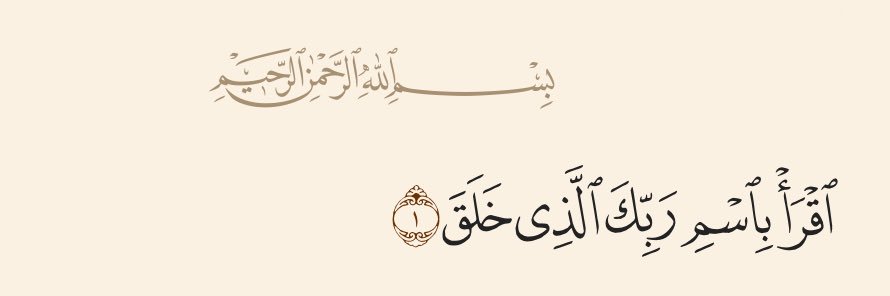 بِسْمِ ٱللَّهِ ٱلرَّحْمَٰنِ ٱلرَّحِيمِ
ٱقْرَأْ بِٱسْمِ رَبِّكَ ٱلَّذِى خَلَقَ ١